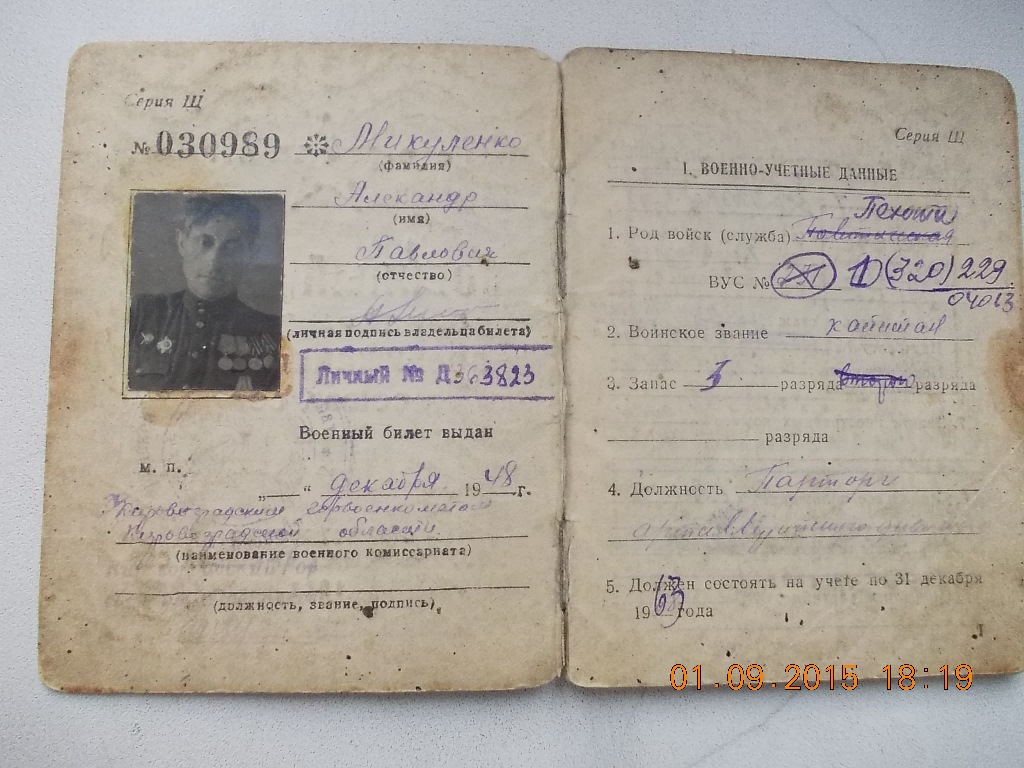 Серия Щ
№ 030989 Микуленко
(фамилия)
Александр
(имя)
Павлович
(отчество)
(личная подпись владельца билета)
Личный № Д 363823
Военный билет выдан
м. п.
„ “ декабря 1948 г.
Кировоградским горвоенкоматом
Кировоградской области
(наименование военного комиссариата)
(должность, звание, подпись)
Серия Щ
I. ВОЕННО-УЧЕТНЫЕ ДАННЫЕ
Пехота
1. Род войск (служба)
ВУС № 1 (320) 229
04013
2. Воинское звание капитан
3. Запас 1 разряда второй разряда
разряда
4. Должность Парторг
5. Должен состоять на учете по 31 декабря
1963 года
1
01.09.2015 18:19